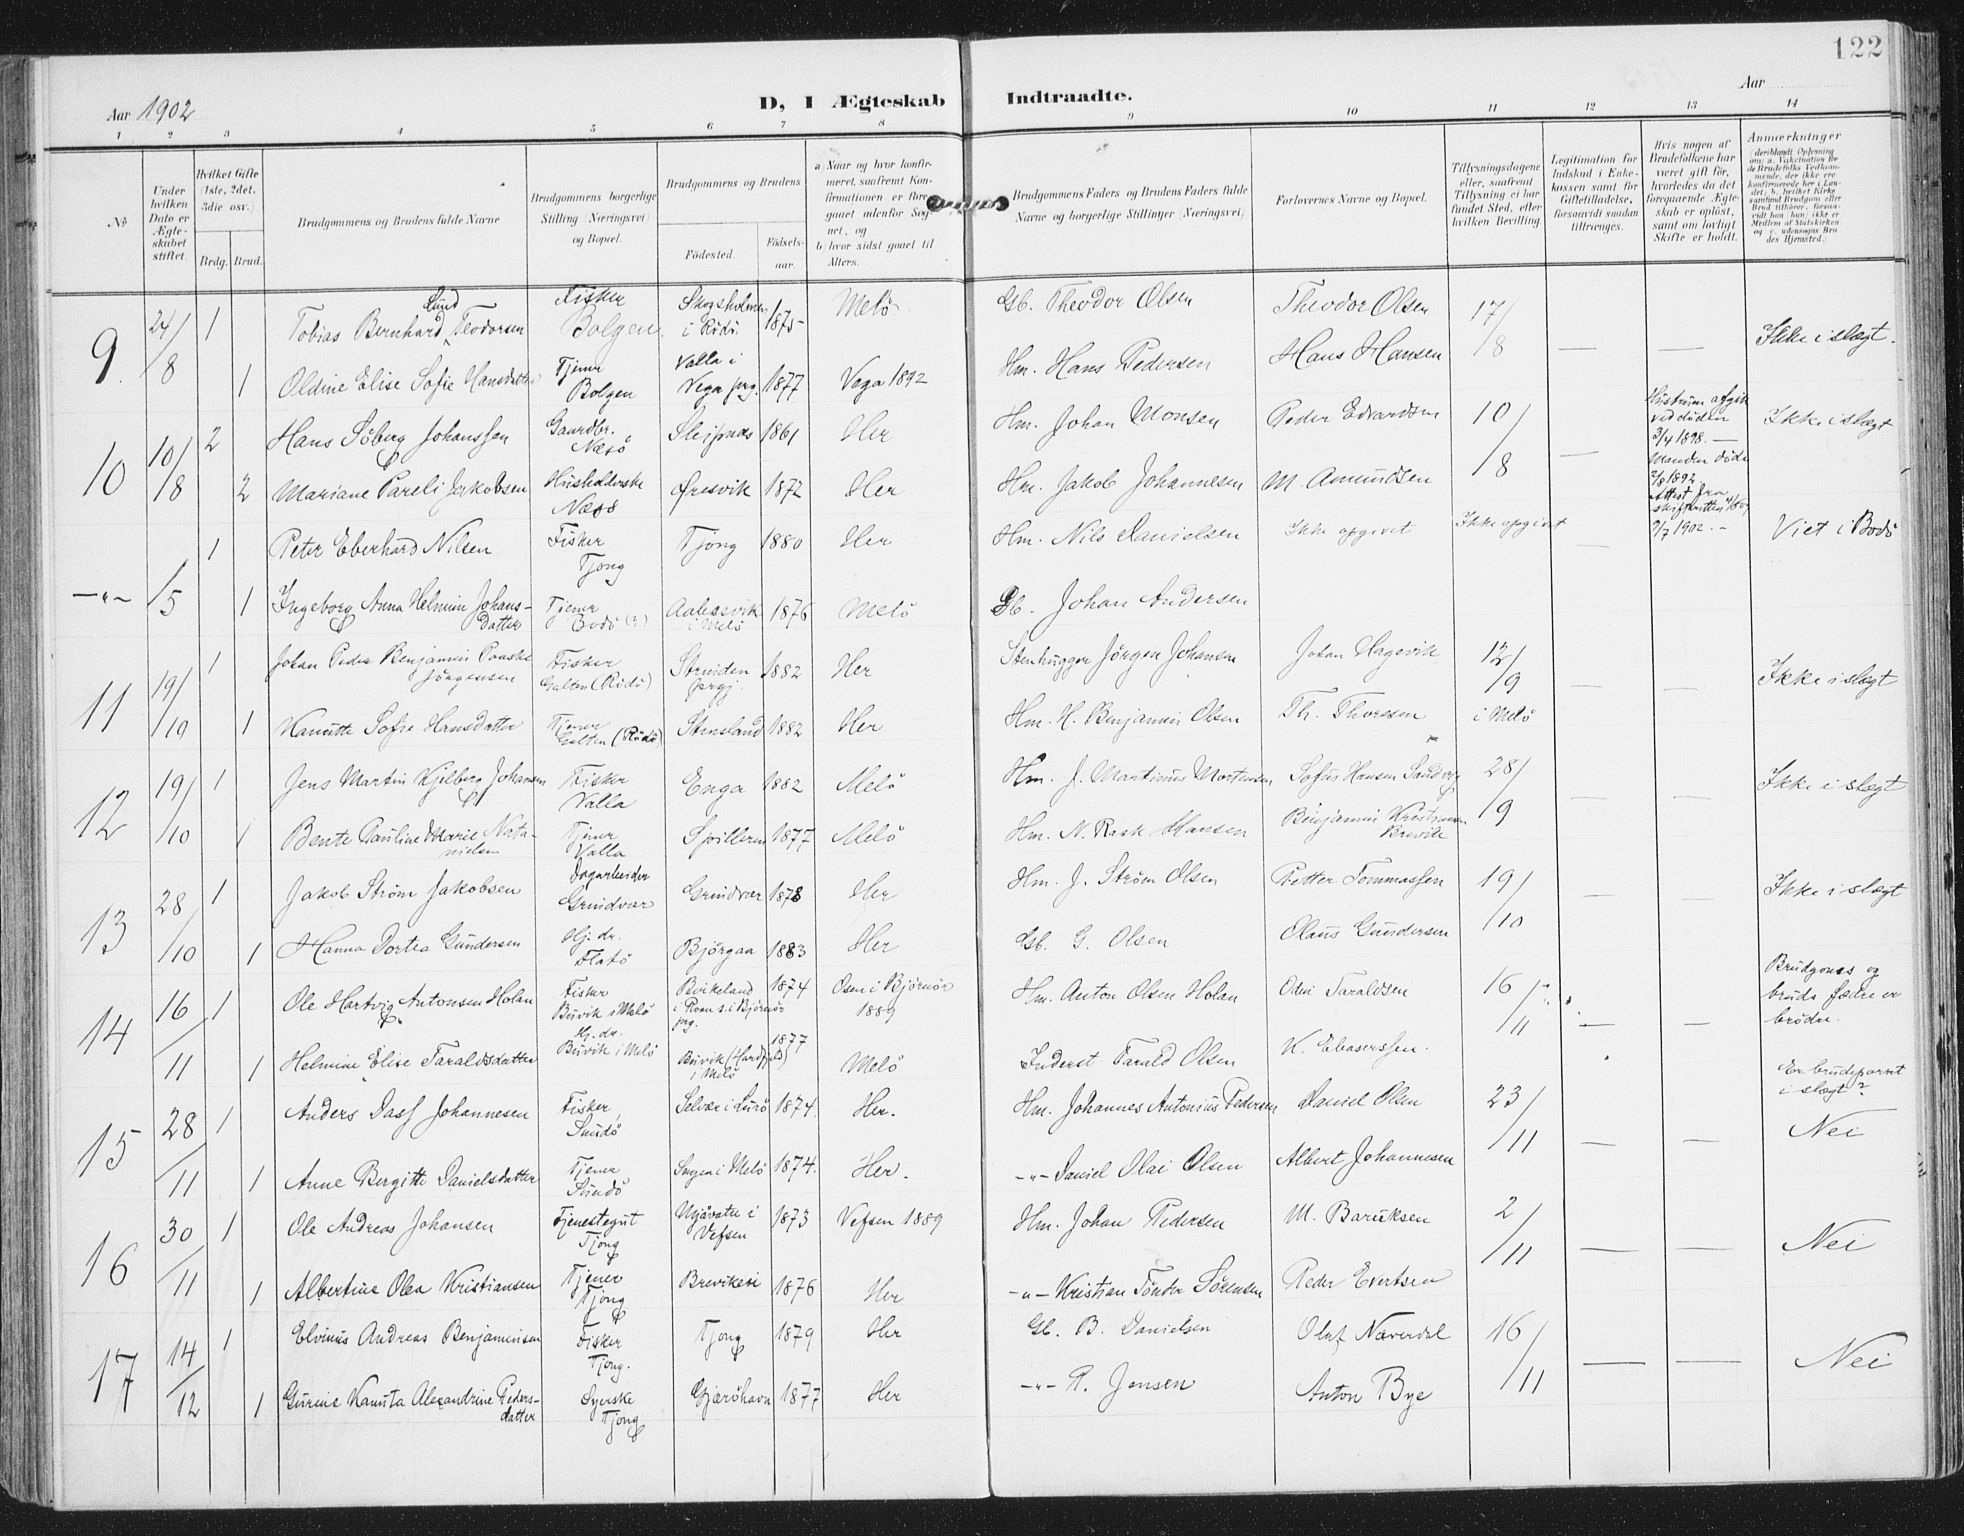 122
Aar 1902
D, I Ægteskab Indtraadte.
Aar
1 2 3 4 5 6 7 8 9 10 11 12 13 14
No
Under hvilken Dato er Ægteskabet stiftet.
Hvilket Gifte (1ste, 2det, 3die osv.)
Brdg. Brud.
Brudgommens og Brudens fulde Navne
Brudgommens borgerlige Stilling (Næringsvei) og Bopæl.
Brudgommens og Brudens
Fødested.
Fødselsaar.
a Naar og hvor konfirmeret, saafremt Konfirmationen er foregaaet udenfor Sognet, og
b hvor sidst gaaet til Alters.
Brudgommens Faders og Brudens Faders fulde Navne og borgerlige Stillinger (Næringsvei)
Forlovernes Navne og Bopæl.
Tillysningsdagene eller, saafremt Tillysning ei har fundet Sted, efter hvilken Bevilling.
Legitimation for Indskud i Enkekassen samt for Giftetilladelse, forsaavidt saadan tiltrænges.
Hvis nogen af Brudefolkene har været gift før, hvorledes da det foregaaende Ægteskab er opløst, samt om lovligt Skifte er holdt.
Anmærkninger
9 24/8 1 Tobias Bernhard Lund Teodorsen Fisker Bolgen Skogsholmen i Rödö 1875 Melö Gb. Theodor Olsen Theodor Olsen 17/8 — — Ikke i slægt.
1 Oldine Elise Sofie Hansdatter Tjener Bolgen Valla i Vega prg. 1877 Vega 1892 Hm. Hans Pedersen Hans Hansen
10 10/8 2 Hans Söberg Johanssen Gaardbr. Næsö Sleipnæs 1861 Her Hm. Johan Monsen Peder Edvardsen 10/8 — Hustruen afgik ved döden 3/4 1898. — Ikke i slægt
2 Mariane Pareli Jakobsen Husholderske Næsö Öresvik 1872 Her Hm. Jakob Johannesen M. Amundsen Manden döde 2/8 1892 Attest fra skifteretten 7/7 1902. –
—"— /5 1 Peter Eberhard Nilsen Fisker Tjong Tjong 1880 Her Hm. Nils Danielsen Ikke opgivet Ikke opgivet — Viet i Bodö
1 Ingeborg Anna Helmine Johansdatter Tjener Bodö (?) Aalesvik i Melö 1876 Melö Gb. Johan Andersen
11 19/10 1 Johan Peder Benjamin Paaske Jörgensen Fisker Galten (Rödö) 1882 Her Stenhugger Jörgen Johansen Johan Hagevik 12/9 i Melö — — Ikke i slægt
1 Kanutte Sofie Hansdatter Tjener Galten (Rödö) Stensland 1882 Her Hm. H. Benjamin Olsen Th. Thoresen
12 19/10 1 Jens Martin Kjelberg Johansen Fisker Valla Enga 1882 Melö Hm. J. Martinus Mortensen Sofus Hansen 28/9 — — Ikke i slægt
1 Bente Pauline Marie Natanielsen Tjener Valla Spilleren 1877 Melö Hm. N. Rask Hansen Benjamin Kristiansen Brevik
13 28/10 1 Jakob Ström Jakobsen Dagarbeider Grundvær Grundvær 1878 Her Hm. J. Ström Olsen Petter Tommassen 19/10 — — Ikke i slægt
1 Hanna Dortea Gundersen Hj. dr. Flatö Björgaa 1883 Her Gb. G. Olsen Olaus Gundersen
14 16/11 1 Ole Hartvig Antonsen Holan Fisker Buvik i Melö 1874 Osen i Björnör 1889 Hm. Anton Olsen Holan Odin Taraldsen 16/11 — — Brudgoms og bruds fædre er brödre.
1 Helmine Elise Taraldsdatter Hj. dr. Buvik i Melö Buvik i Melö 1877 Melö Inderst Tarald Olsen K. Ebasersen.
Er brudeparret i slægt?
15 28/11 1 Anders Dass Johannesen Fisker, Sundö Selvær i Lurö 1874. Her. Hm. Johannes Antonius Pedersen Daniel Olsen 23/11 — — Nei
1 Anne Bergitte Danielsdatter Tjener Sundö i Melö 1874. Her. —"— Daniel Olai Olsen Albert Johannesen
16 30/11 1 Ole Andreas Johansen Tjenestegut Tjong Mjåvatn i Vefsen 1873 Vefsen 1889 Hm. Johan Pedersen M. Baruksen 2/11 — — Nei
1 Albertine Olea Kristiansen Tjener Tjong 1876 Her —"— Kristian Tönder Sörensen Peder Evertsen
17 14/12 1 Elvinus Andreas Benjaminsen Fisker Tjong. Tjong 1879 Her Gb. B. Danielsen Olaf Næverdal 16/11 — — Nei
1 Gurine Kanuta Alexandrine Pedersdatter Syerske Tjong Gjæröhavn 1877 Her —"— R. Jensen Anton Bye